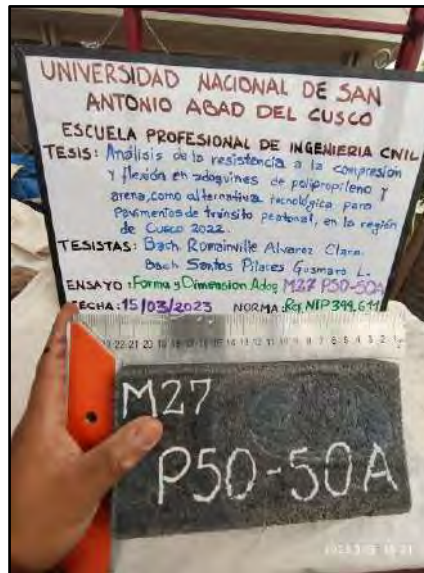 UNIVERSIDAD NACIONAL DE SAN
ANTONIO ABAD DEL CUSCO
ESCUELA PROFESIONAL DE INGENIERIA CIVIL
TESIS: Análisis de la resistencia a la compresión
y flexión en adoquines de polipropileno y
arena, como alternativa tecnológica para
Pavimentos de tránsito peatonal, en la región
de Cusco 2022.
TESISTAS: Bach. Romainville Alvarez Clara.
Bach. Santos Pilares Gusmaro L.
ENSAYO: Forma y Dimension Adoq M27 P50-50A
FECHA: 15/03/2023 NORMA: Ref. NTP 399.611
22 21 20 19 18 17 16 15 14 13 12 11 10 9 8 7 6 5 4 3 2 1
M27
P50-50A